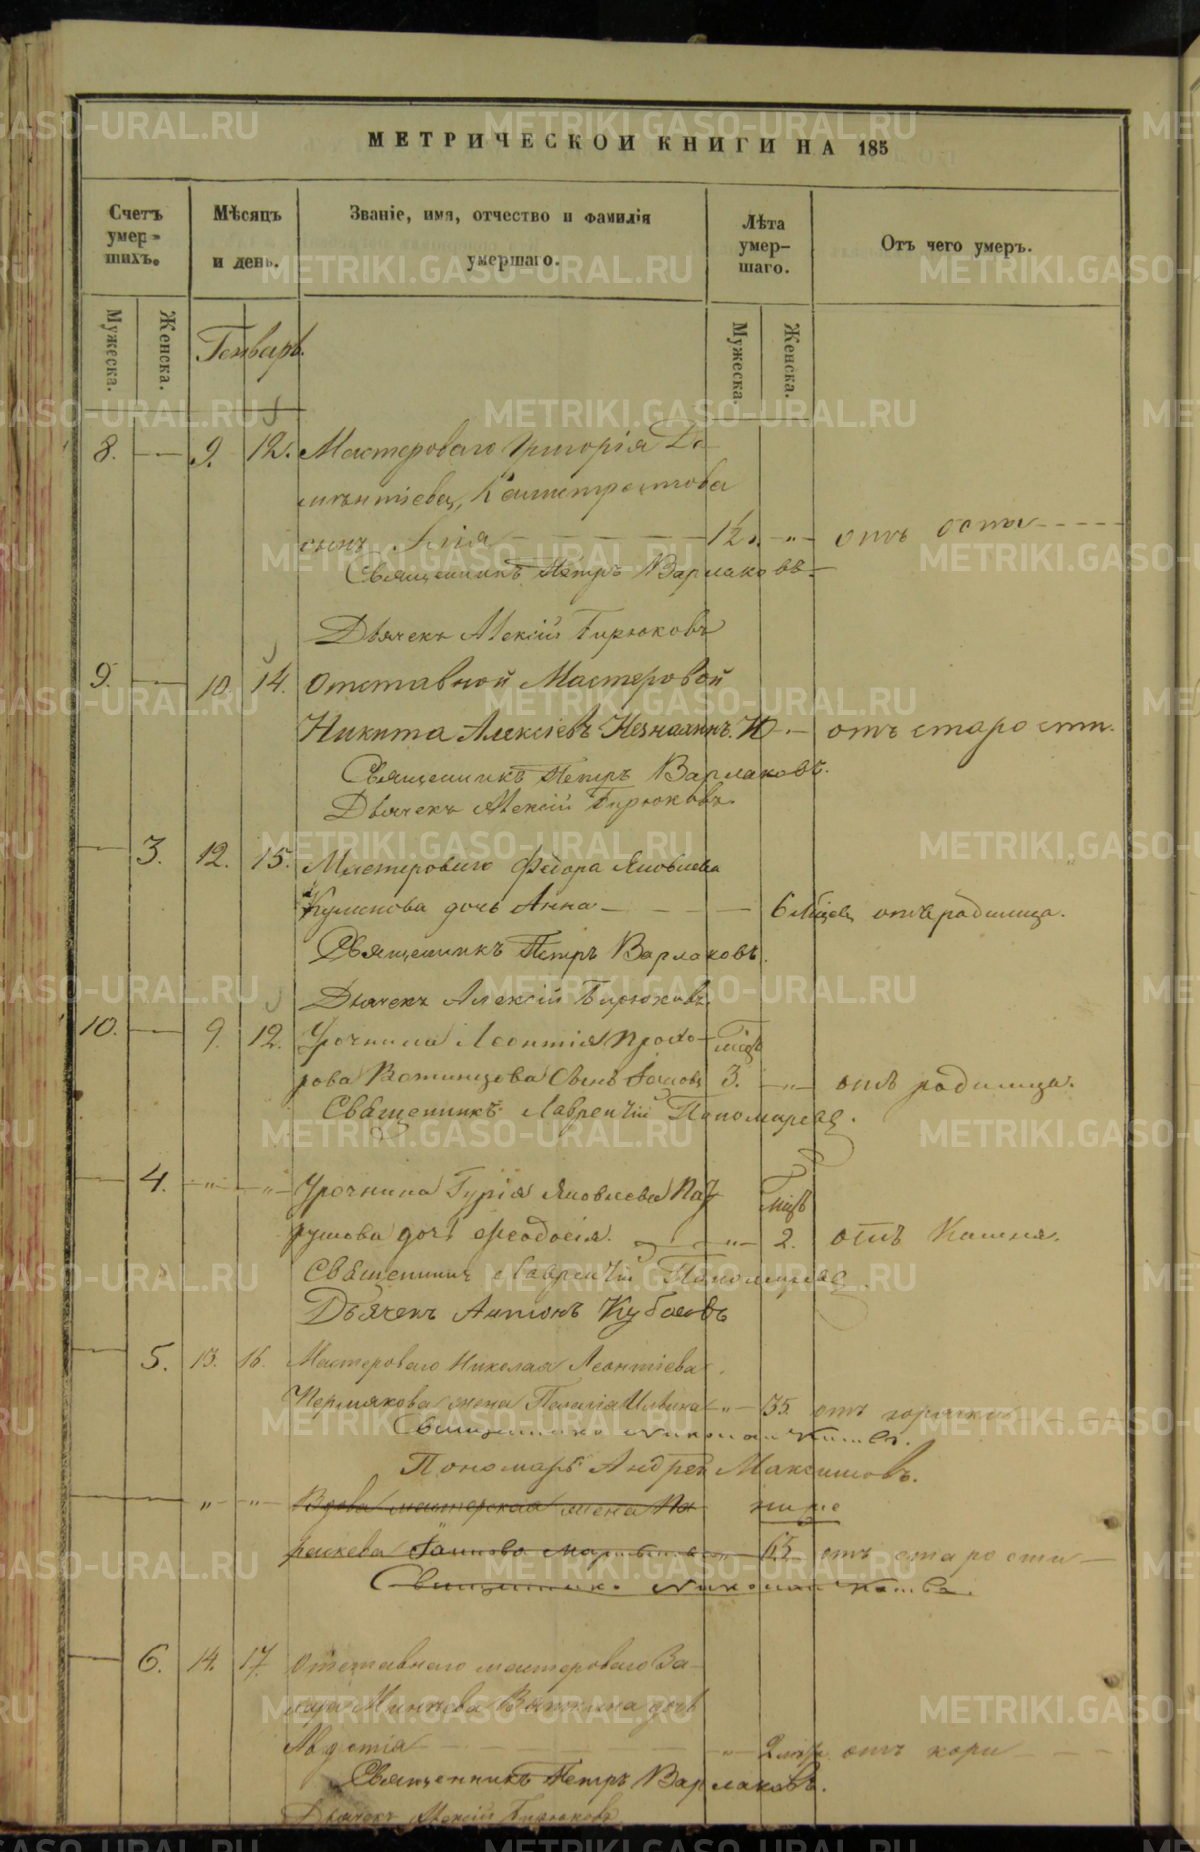 МЕТРИЧЕСКОЙ КНИГИ НА 185
Счетъ умер-шихъ.
Мѣсяцъ и день.
Званіе, имя, отчество и фамилія умершаго.
Лѣта умер-шаго.
Отъ чего умеръ.
Мужеска.
Женска.
Генварь.
Мужеска.
Женска.
8. 9. 12. Мастероваго Григорія
сынъ 1½ отъ оспы
Священникъ Петръ Варлаковъ.
Дьячекъ Алексій Бирюковъ
9. 10. 14. Отставной Мастеровой
Никита Алексіевъ отъ старости.
Священникъ Петръ Варлаковъ.
Дьячекъ Алексій Бирюковъ.
3. 12. 15. Мастероваго Федора Яковлева
дочь Анна 6 отъ родимца.
Священникъ Петръ Варлаковъ.
Дьячекъ Алексій Бирюковъ
10. 9. 12. Урочника Леонтія Прохо-
рова сынъ 3. отъ родимца.
Священникъ Лаврентій Пономаревъ.
4. " " Урочника Гурія Яковлева
дочь Феодосія. " 2. отъ Кашля.
Священникъ Лаврентій Пономаревъ.
Дьячекъ Антонъ Кубасовъ
5. 13. 16. Мастероваго Николая Леонтіева
Пермякова жена Пелагія " 35. отъ горячки
Священникъ Николай
Пономарь Андрей Максимовъ.
" " Вдова мастерская жена Па
раскева 65 отъ старости
ниже
Священникъ Николай
6. 14. 17. Отставнаго мастероваго За-
хара дочь
Авдотія " 2 отъ кори
Священникъ Петръ Варлаковъ.
Дьячекъ Алексій Бирюковъ
METRIKI.GASO-URAL.RU